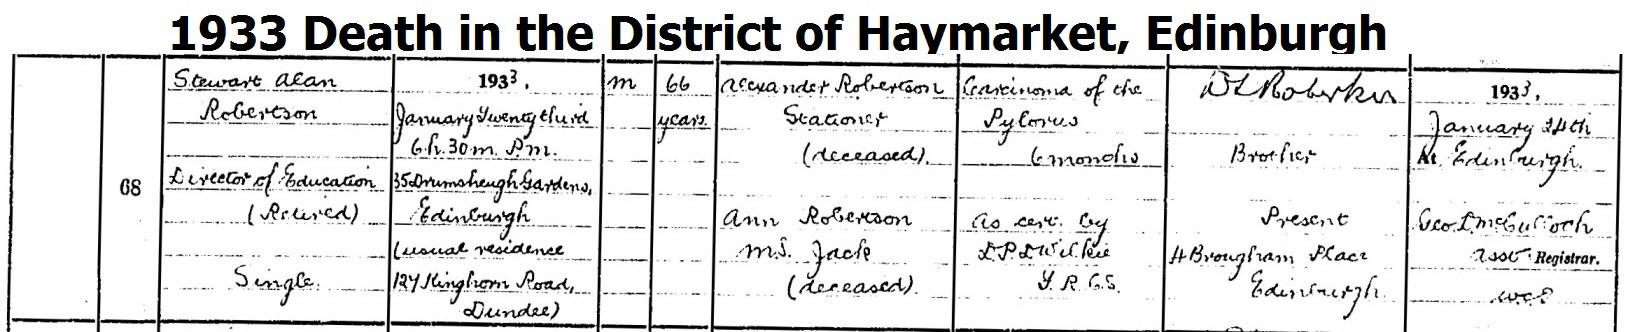 1933 Death in the District of Haymarket, Edinburgh
68
Stewart Alan
Robertson
Director of Education
(Retired)
Single.
1933.
January Twenty third
6h. 30m. P.m.
35 Drumsheugh Gardens,
Edinburgh
(usual residence
127 Kinghorn Road,
Dundee)
m
66
years.
Alexander Robertson
Stationer
(deceased).
Ann Robertson
m.S. Jack
(deceased).
Carcinoma of the
Pylorus
6 months
As cert. by
D P D Wilkie
F. R. C. S.
Brother
Present
4 Brougham Place
Edinburgh.
1933.
January 24th
At Edinburgh.
Geo. McCulloch
Asst. Registrar.